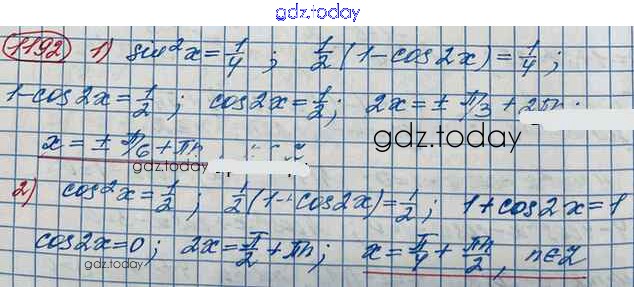 gdz.today
1192 1) sin²x = 1/4 ; 1/2 (1-cos2x) = 1/4 ;
1-cos2x = 1/2 ; cos2x = 1/2 ; 2x = ± π/3 + 2πn
gdz.today
x = ± π/6 + πn
gdz.today
2) cos²x = 1/2 ; 1/2 (1+cos2x) = 1/2 ; 1+cos2x = 1
cos2x = 0 ; 2x = π/2 + πn ; x = π/4 + πn/2 , n∈Z
gdz.today